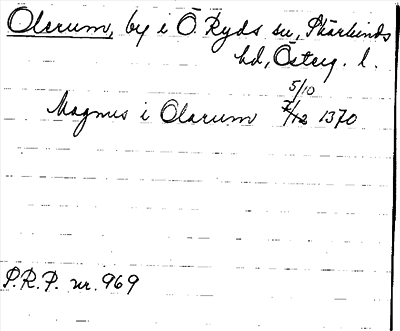 Olerum, by i Ö. Ryds sn, Skärkinds
hd, Österg. l.
5/10
Magnus i Olarum 7/12 1370
P.R.P. nr. 969